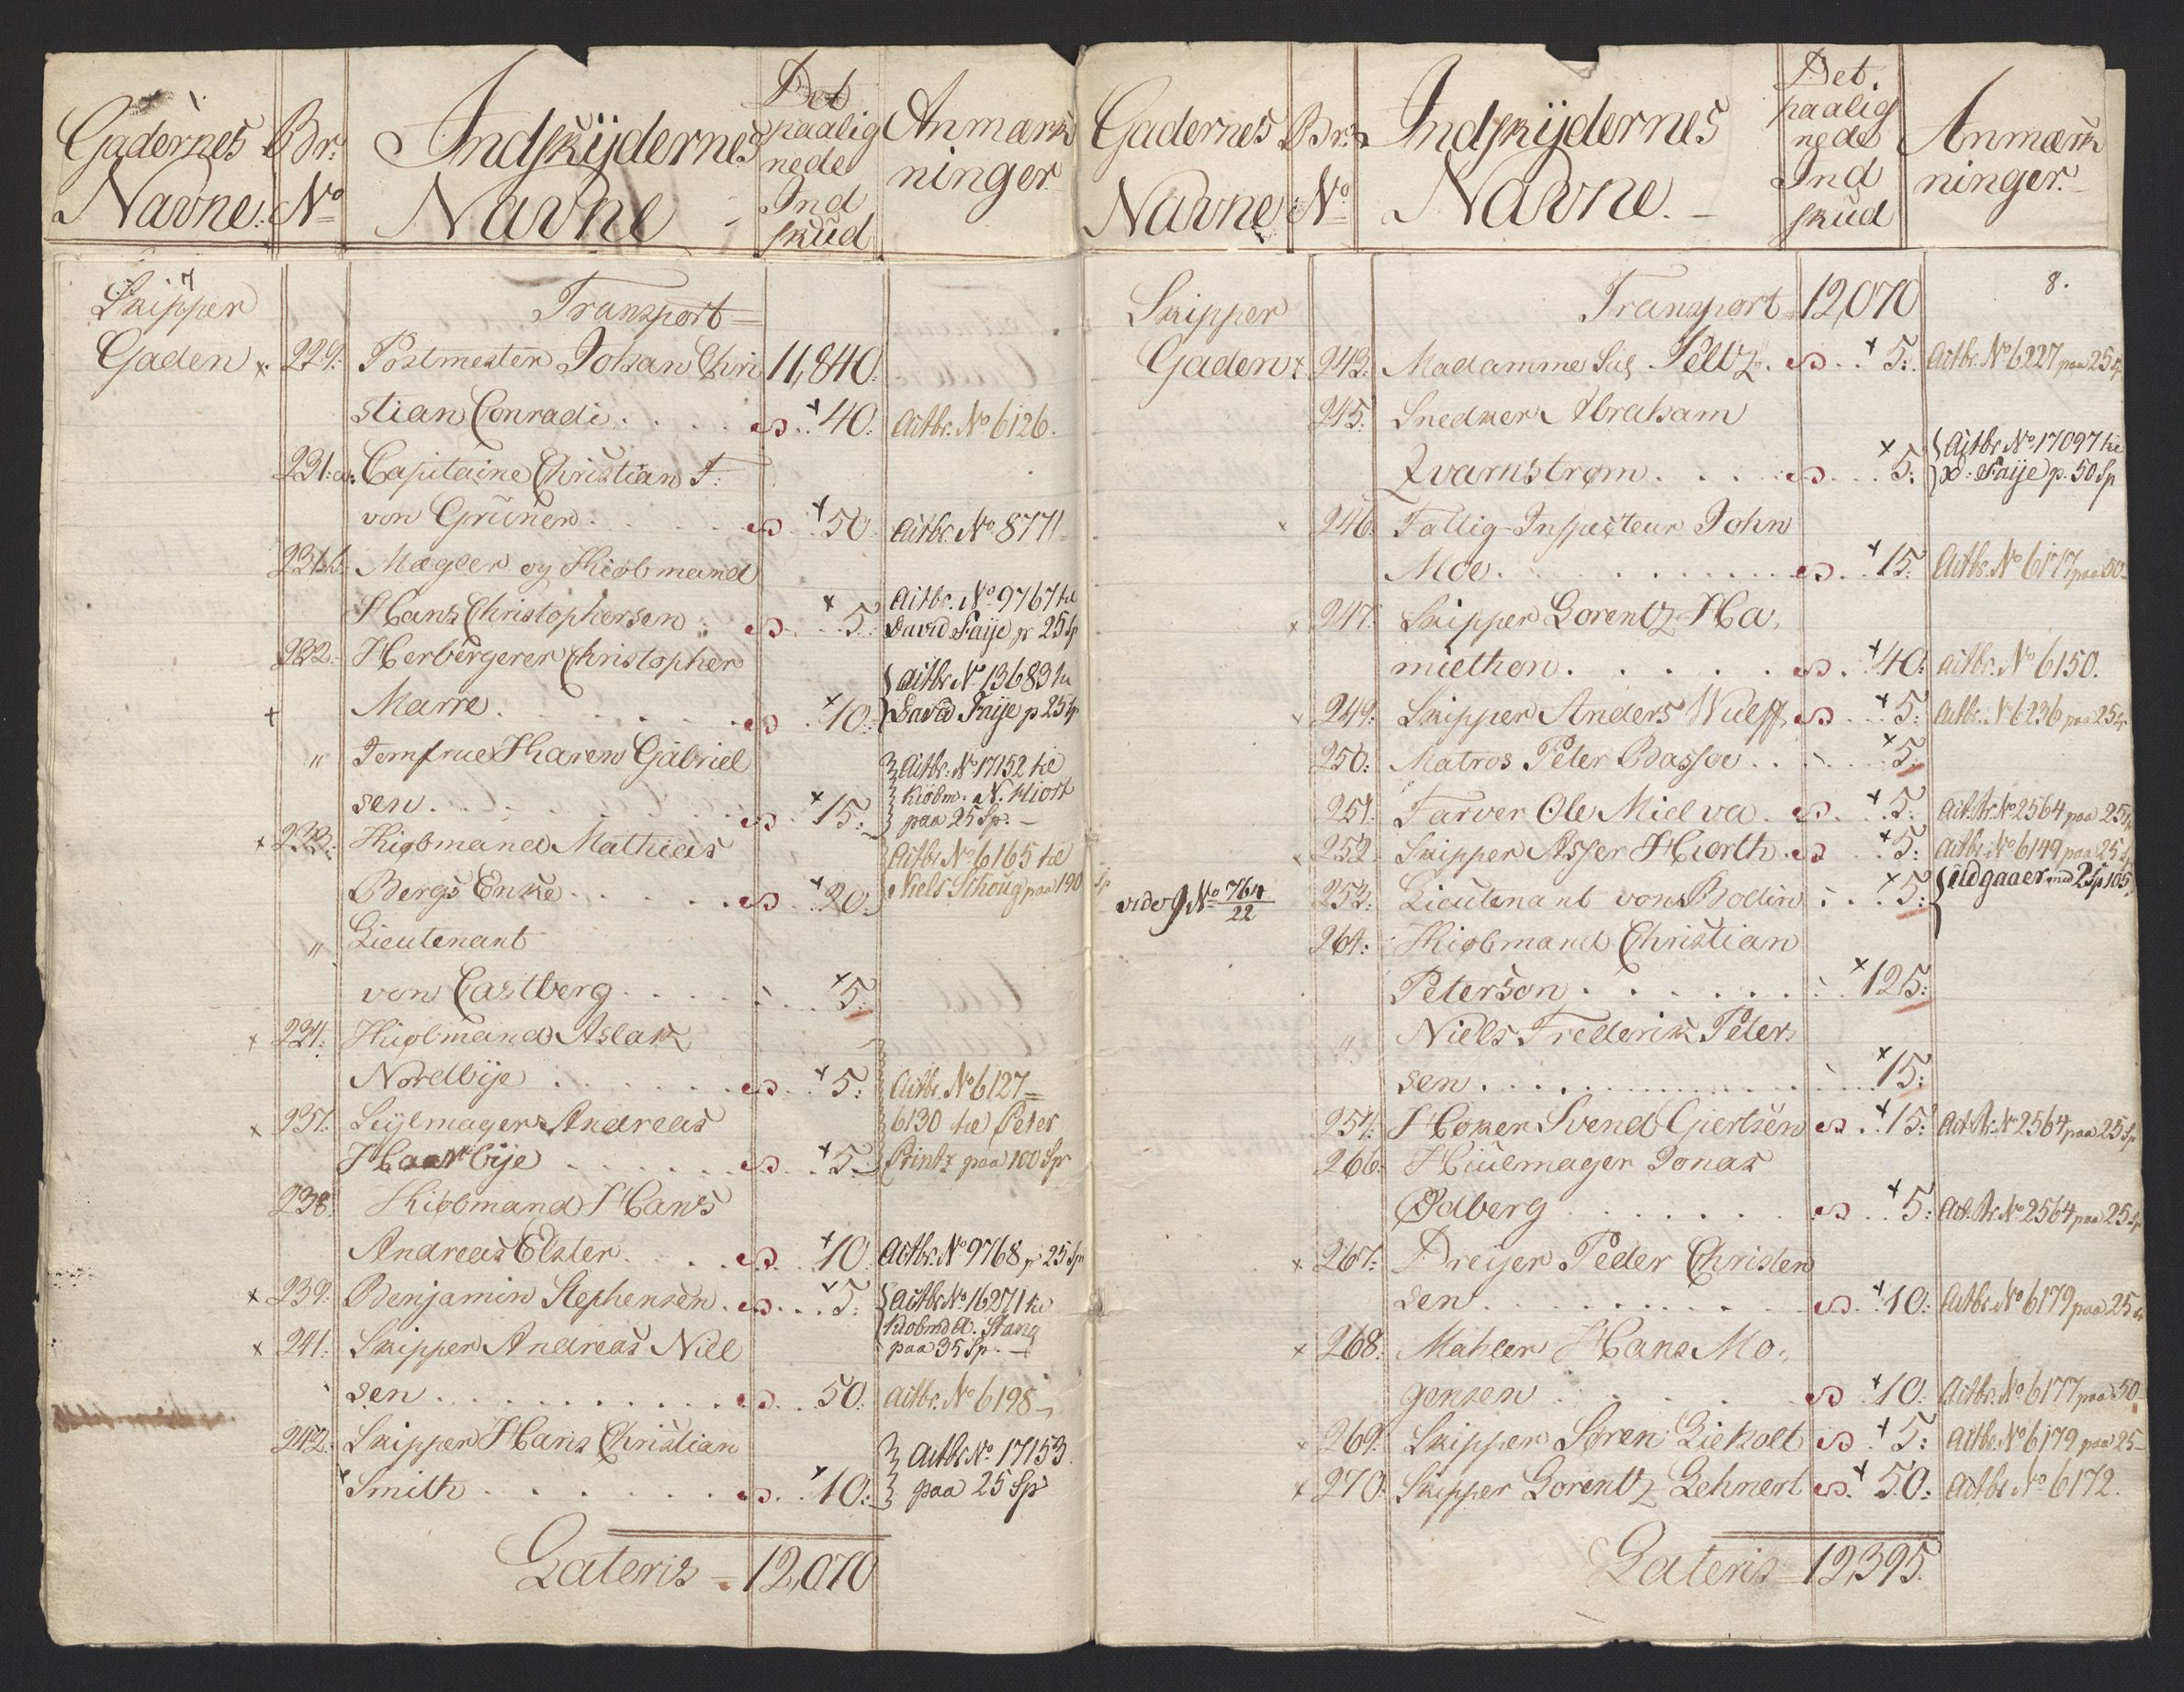 Gadernes Navne. Br: No Indskydernes Navne Det paalig nede Ind skud Anmærk ninger
7
Skipper Transport
Gaden × 229: Postmester Johan Chri 11,840:
stian Conradi . . . . × 40: Actbr. No 6126.
231:a: Capitaine Christian F:
von Grünen . . . . × 50 Actbr. No 8771
231b: Mægler og Kiøbmand
Hans Christophersen × 5: Actbr. No 9767 til David Faije p 25 Sp
232: Herbergerer Christopher
× Marre . . . . × 10: Actbr No 13683 til David Faije p 25 Sp
" Jomfrue Karen Gabriel
sen . . . . × 15: Actbr. No 17152 til Kiøbm. N. Kiort paa 25 Sp. –
× 233: Kiøbmand Mathias
Bergs Enke . . . . × 20: Actbr No 6165 til Niels Schoug paa 190 Sp
" Lieutenant
von Castberg . . . . × 5:
× 234: Kiøbmand Aslak
Nordbye . . . . × 5: Actbr. No 6127 =
× 237: Seylmager Andreas 6130 til Peter
Haarbye . . . . × 5: Printz paa 100 Sp
238: Kiøbmand Hans
Andreas Elster . . . . × 10: Actbr. No 9768 p 25 Sp
× 239: Benjamin Stephensen . . × 5: Actbr No 16271 til
× 241: Skipper Andreas Niel Kiobmd A. Stang paa 35 Sp. –
sen . . . . 50: Actbr. No 6198
242: Skipper Hans Christian
× Smith . . . . × 10: Actbr No 17153 paa 25 Sp
Lateris = 12,070
Gadernes Navne Br: No Indskydernes Navne. – Det paalig nede Ind skud Anmærk ninger.
8.
Skipper Transport 12,070
Gaden × 243: Madamme Sal. Peltz . × 5: Actbr. No 6227 paa 25 Sp
245: Snedker Abraham
Qvarnstrøm . . . . × 5: Actbr No 17097 til D: Faije p. 50 Sp
× 246: Fattig-Inspecteur John
Moe . . . . × 15: Actbr. No 6177 paa 50
× 247: Skipper Lorentz Ha,
miethon . . . . × 40: Actbr. No 6150.
× 249: Skipper Anders Wulff × 5: Actbr. No 6236 paa 25 Sp
250: Matros Peter Bassoe . . × 5:
251: Farver Ole Mielva . × 5: Act. Br. No 2564 paa 25 Sp
× 252: Skipper Asser Hiorth . × 5: Actbr. No 6149 paa 25 Sp
vide J No 764/22 253: Lieutenant von Bollin . . . × 5: udgaaer med 2 Sp 105
264: Kiøbmand Christian
Peterson . . . . × 125:
" Niels Frederik Peter
sen . . . . × 15:
254: Høker Svend Giertsen × 15: Act. Br. No 2564 paa 25 Sp
266: Hiulmager Jonas
Ødberg . . . . × 5: Act. Br. No 2564 paa 25 Sp
× 267: Dreyer Peder Christen
sen . . . . × 10: Actbr. No 6179 paa 25
× 268: Mahler Hans Mo,
gensen . . . . × 10: Actbr. No 6177 paa 50
× 269: Skipper Søren Liekolt × 5: Actbr. No 6179 paa 25
× 270: Skipper Lorentz Lehnert × 50: Actbr No 6172.
Lateris 12,395.